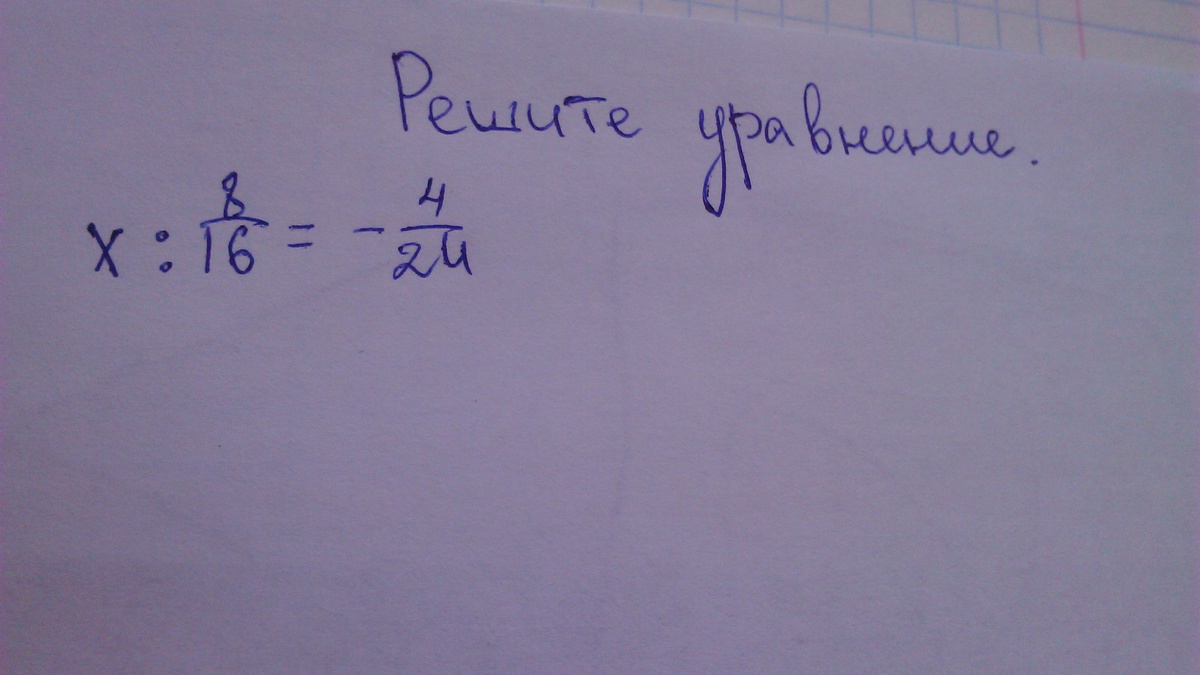 Решите уравнение.
x : 8/16 = - 4/24